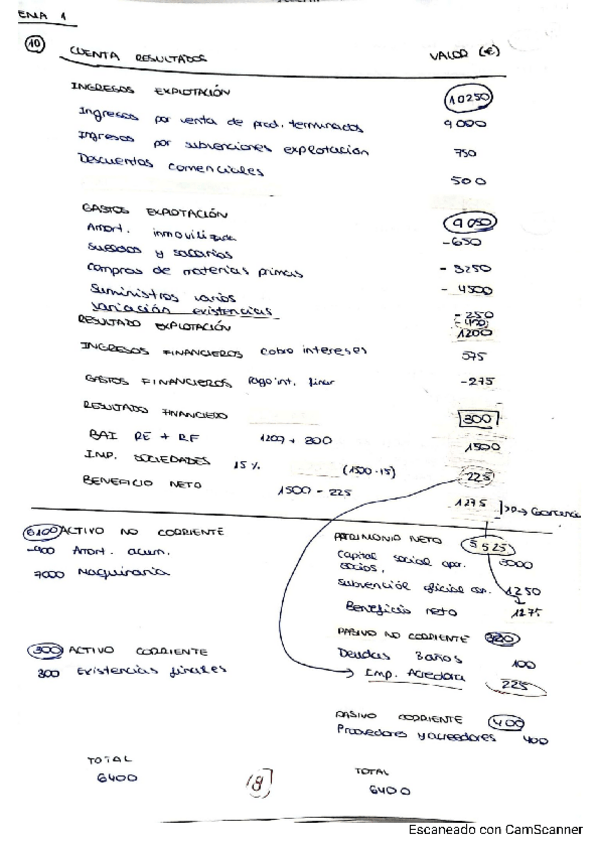 EMA 1
10 CUENTA RESULTADOS VALOR (€)
INGRESOS EXPLOTACIÓN 10250
Ingresos por venta de prod. terminados 9000
Ingresos por subvenciones explotación 750
Descuentos comerciales 500
GASTOS EXPLOTACIÓN 9050
Amort. inmovilizado -650
Sueldos y salarios
Compras de materias primas -3250
Suministros varios -4500
Variación existencias -250
RESULTADO EXPLOTACIÓN 1200
INGRESOS FINANCIEROS cobro intereses 575
GASTOS FINANCIEROS Pago int. -275
RESULTADO FINANCIERO 300
BAI RE + RF 1200 + 300 1500
IMP. SOCIEDADES 15% (1500·15) 225
BENEFICIO NETO 1500 - 225 1275
6100 ACTIVO NO CORRIENTE
-900 Amort. acum.
7000 Maquinaria
300 ACTIVO CORRIENTE
300 Existencias finales
TOTAL
6400
PATRIMONIO NETO 5525
Capital social apor. socios. 3000
Subvención oficial 1250
Beneficio neto 1275
PASIVO NO CORRIENTE
Deudas 3 años 100
Imp. Acreedora 225
PASIVO CORRIENTE 400
Proveedores y acreedores 400
TOTAL
6400
Escaneado con CamScanner